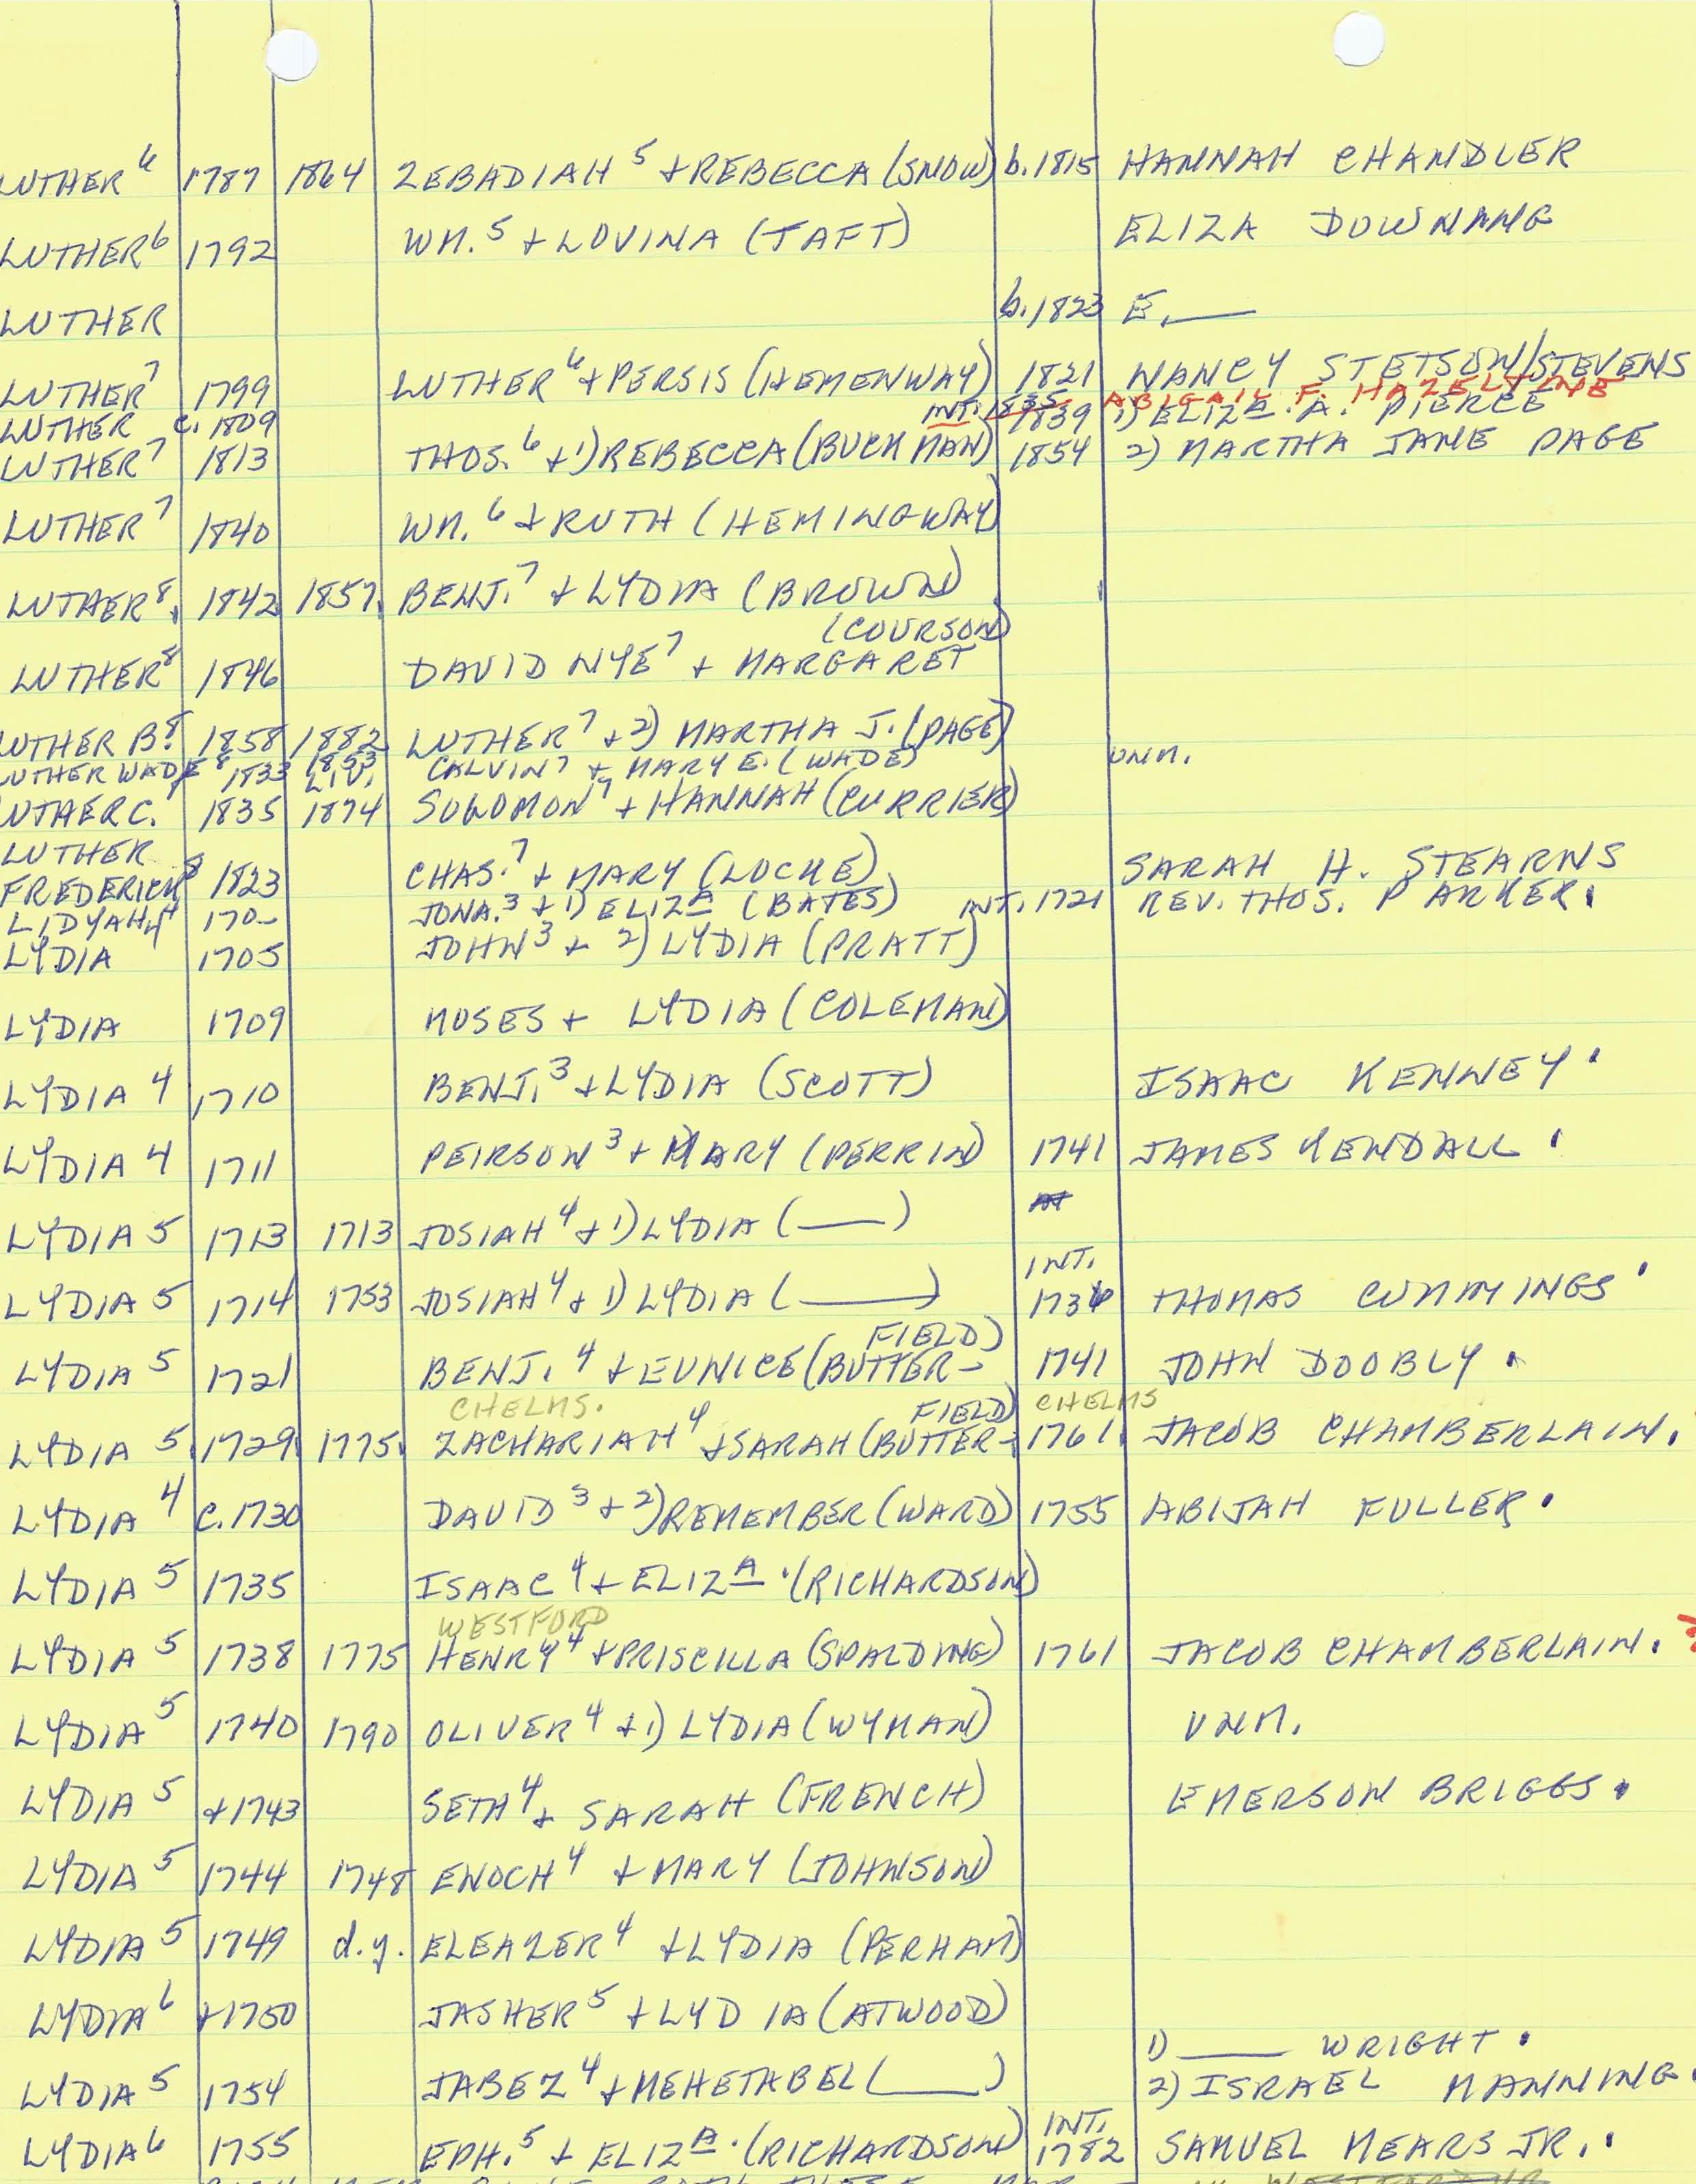 LUTHER 6 1787 1864 ZEBADIAH 5 + REBECCA (SNOW) b. 1815 HANNAH CHANDLER
LUTHER 6 1792 WM. 5 + LOVINA (TAFT) ELIZA DOWNANG
LUTHER b. 1823 E. ___
LUTHER 7 1799 LUTHER 6 + PERSIS (HEMENWAY) 1821 NANCY STETSON/STEVENS
LUTHER c. 1809 INT. 1835 ABIGAIL F. HAZELTINE
1839 1) ELIZA. A. PIERCE
LUTHER 7 1813 THOS. 6 + 1) REBECCA (BUCKMAN) 1854 2) MARTHA JANE PAGE
LUTHER 7 1840 WM. 6 + RUTH (HEMINGWAY)
LUTHER 8. 1842 1857. BENJ. 7 + LYDIA (BROWN)
(COURSON)
LUTHER 8 1846 DAVID NYE 7 + MARGARET
LUTHER B. 8 1858 1882 LUTHER 7 + 2) MARTHA J. (PAGE)
UNM.
LUTHER WADE 8 1833 1853 LIV. CALVIN 7 + MARY E. (WADE)
LUTHER C. 1835 1874 SOLOMON 7 + HANNAH (CURRIER)
LUTHER
FREDERICK 8 1823 CHAS. 7 + MARY (LOCKE) SARAH H. STEARNS
LIDYAH 4 170- JONA. 3 + 1) ELIZA (BATES) INT. 1721 REV. THOS. PARKER.
LYDIA 1705 JOHN 3 + 2) LYDIA (PRATT)
LYDIA 1709 MOSES + LYDIA (COLEMAN)
LYDIA 4 1710 BENJ. 3 + LYDIA (SCOTT) ISAAC KENNEY.
LYDIA 4 1711 PEIRSON 3 + MARY (PERRIN) 1741 JAMES KENDALL.
LYDIA 5 1713 1713 JOSIAH 4 + 1) LYDIA (___)
INT.
LYDIA 5 1714 1753 JOSIAH 4 + 1) LYDIA (___) 1736 THOMAS CUMMINGS.
FIELD)
LYDIA 5 1721 BENJ. 4 + EUNICE (BUTTER- 1741 JOHN DOOBLY.
CHELMS. FIELD) CHELMS
LYDIA 5. 1729. 1775. ZACHARIAH 4 + SARAH (BUTTER- 1761. JACOB CHAMBERLAIN.
LYDIA 4 c. 1730 DAVID 3 + 2) REMEMBER (WARD) 1755 ABIJAH FULLER.
LYDIA 5 1735 ISAAC 4 + ELIZA. (RICHARDSON)
WESTFORD
LYDIA 5 1738 1775 HENRY 4 + PRISCILLA (SPALDING) 1761 JACOB CHAMBERLAIN.
LYDIA 5 1740 1790 OLIVER 4 + 1) LYDIA (WYMAN) UNM.
LYDIA 5 +1743 SETH 4 + SARAH (FRENCH) EMERSON BRIGGS.
LYDIA 5 1744 1748 ENOCH 4 + MARY (JOHNSON)
LYDIA 5 1749 d.y. ELEAZER 4 + LYDIA (PERHAM)
LYDIA 6 +1750 JASHER 5 + LYDIA (ATWOOD)
1) ___ WRIGHT.
LYDIA 5 1754 JABEZ 4 + MEHETABEL (___) 2) ISRAEL MANNING.
INT.
LYDIA 6 1755 EPH. 5 + ELIZA. (RICHARDSON) 1782 SAMUEL MEARS JR..